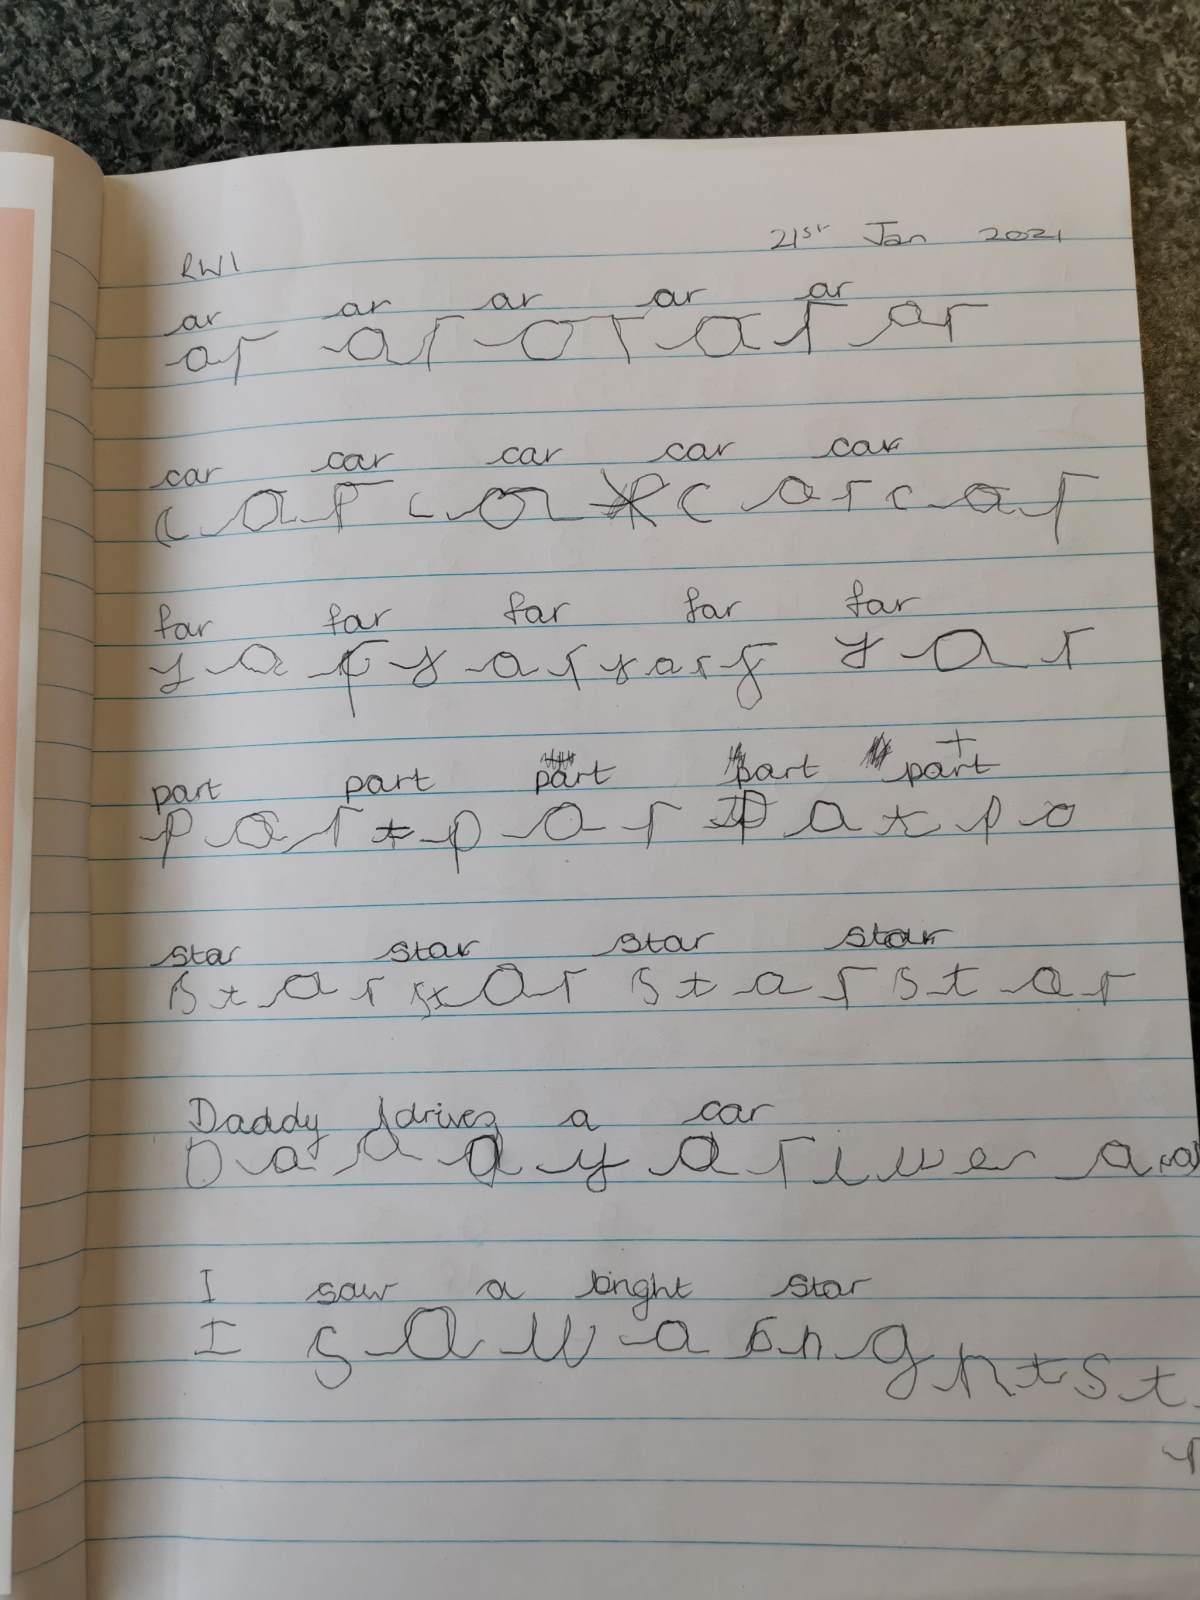 RWI 21st Jan 2021
ar ar ar ar ar
ar ar ar ar ar
car car car car car
car ca c ar car
far far far far far
y a f y ar y ar f y a r
part part part part part
par t par p a t p a
star star star star
star star star star
Daddy drives a car
Daddy ariver a car
I saw a bright star
I saw a bnght st
r